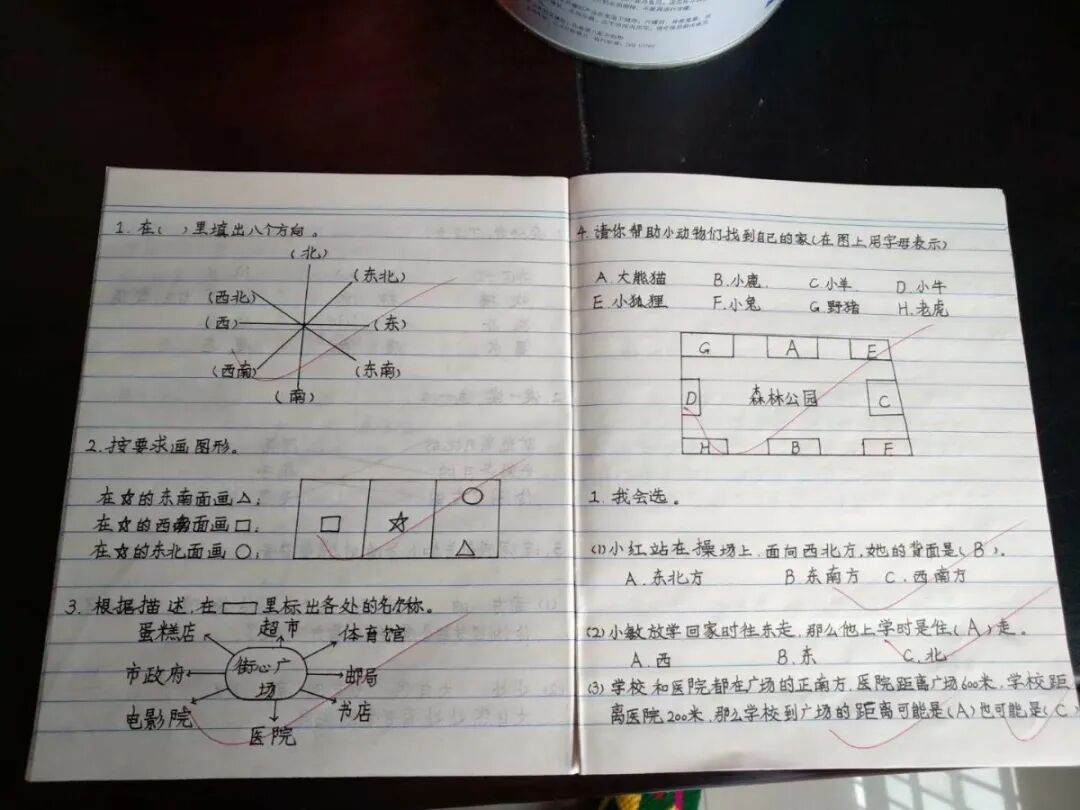 1.在( )里填出八个方向。
(北)
(西北)
(东北)
(西)
(东)
(西南)
(东南)
(南)
2.按要求画图形。
在☆的东南面画△;
在☆的西面画□;
在☆的东北面画○;
3.根据描述,在▭里标出各处的名称。
蛋糕店
超市
体育馆
市政府
街心广
场
邮局
电影院
医院
书店
4.请你帮助小动物们找到自己的家(在图上用字母表示)
A.大熊猫 B.小鹿. C.小羊 D.小牛
E.小狐狸 F.小兔 G.野猪 H.老虎
G A E
D 森林公园 C
H B F
1.我会选。
(1)小红站在操场上,面向西北方,她的背面是(B)。
A.东北方 B.东南方 C.西南方
(2)小敏放学回家时往东走,那么他上学时是往(A)走。
A.西 B.东 C.北
(3)学校和医院都在广场的正南方,医院距离广场600米,学校距
离医院200米,那么学校到广场的距离可能是(A)也可能是(C)